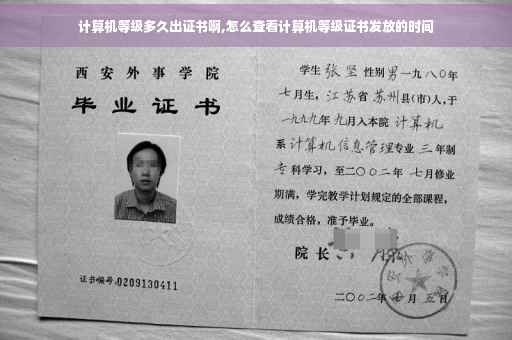 计算机等级多久出证书啊,怎么查看计算机等级证书发放的时间
西安外事学院
毕业证书
证书编号:0209130411
学生 张坚 性别 男 一九八〇年
七月生, 江苏省 苏州县(市)人,于
一九九九年 九月入本院 计算机
系 计算机信息管理专业 三 年制
专科学习,至二〇〇二年 七月修业
期满,学完教学计划规定的全部课程,
成绩合格,准予毕业。
院长
二〇〇二年 月 五日